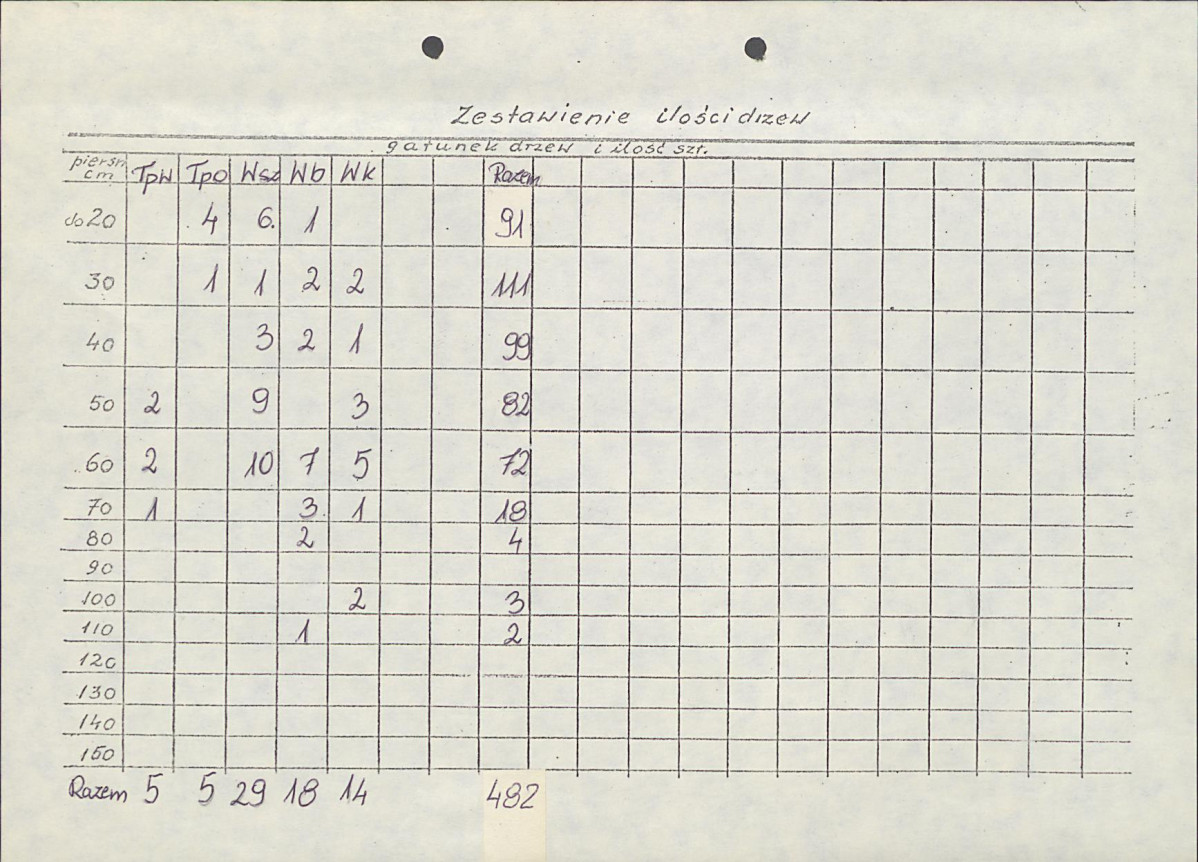 Zestawienie ilości drzew
gatunek drzew i ilość szt.
piersn. cm Tpw Tpo Wsz Wb Wk Razem
do 20 4 6. 1 91
30 1 1 2 2 111
40 3 2 1 99
50 2 9 3 82
60 2 10 7 5 72
70 1 3 1 18
80 2 4
90
100 2 3
110 1 2
120
130
140
150
Razem 5 5 29 18 14 482